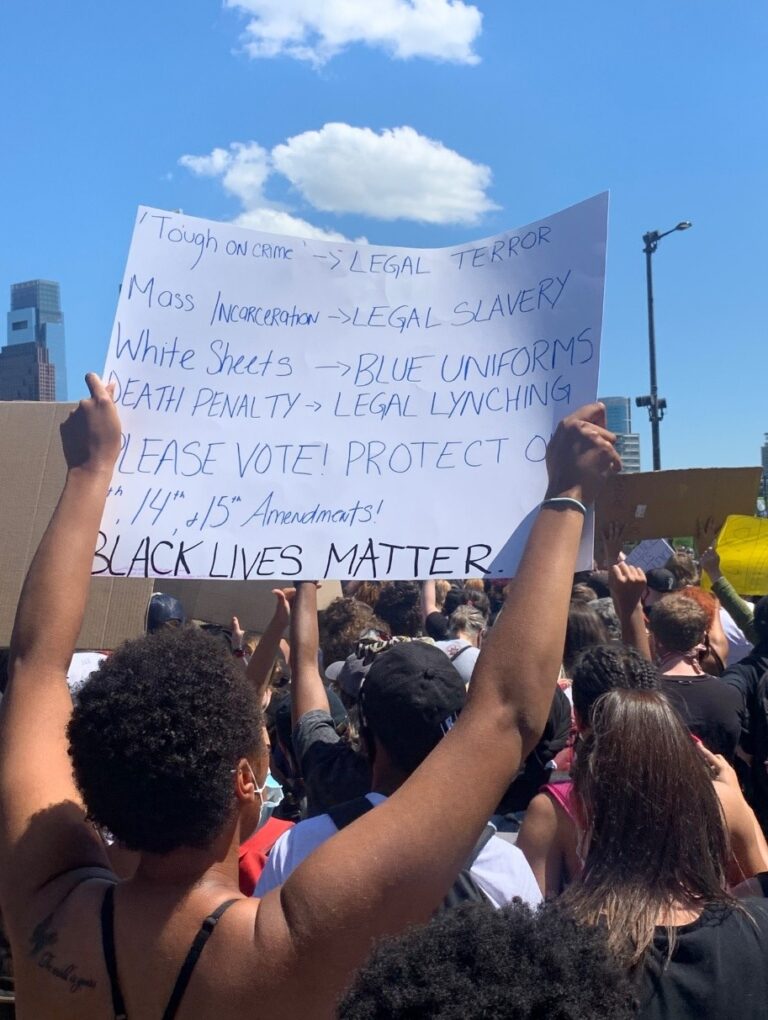 'Tough on crime' -> LEGAL TERROR
Mass Incarceration -> LEGAL SLAVERY
White Sheets -> BLUE UNIFORMS
DEATH PENALTY -> LEGAL LYNCHING
PLEASE VOTE! PROTECT
14th, & 15th Amendments!
BLACK LIVES MATTER.